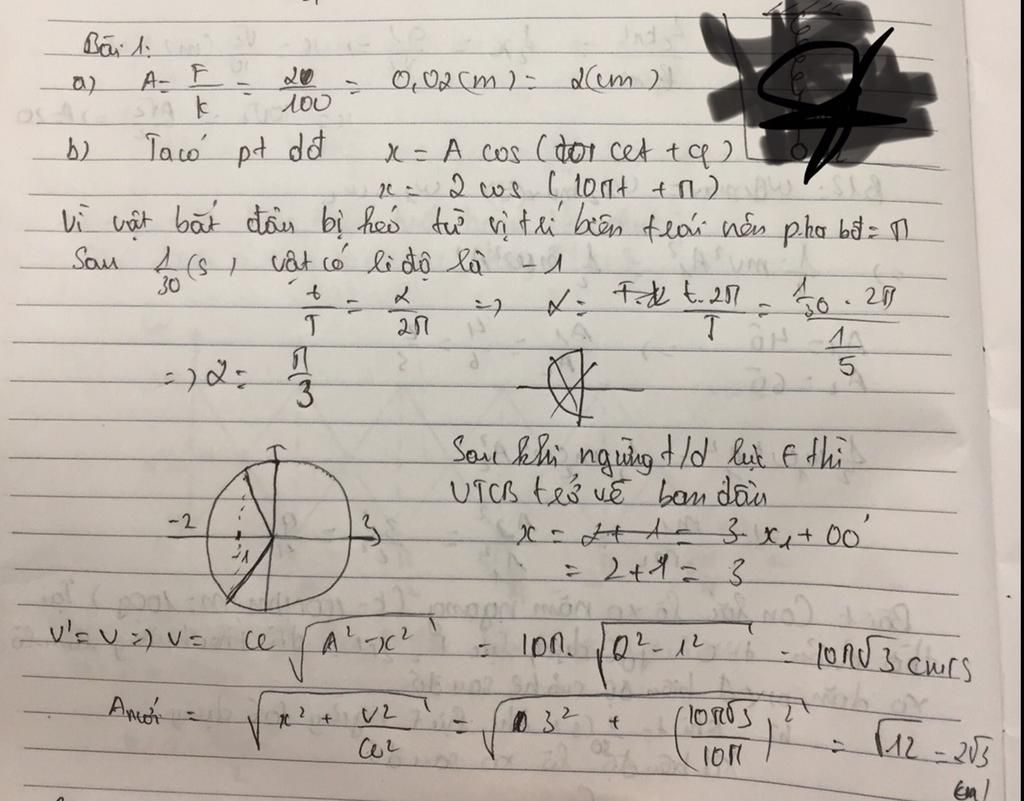 Bài 1:
a) A = F/k = 20/100 = 0,02 (m) = 2 (cm)
b) Ta có pt dđ x = A cos (ωt + φ)
x = 2 cos (10πt + π)
Vì vật bắt đầu bị kéo từ vị trí biên trái nên pha bđ = π
Sau 1/30 (s) vật có li độ là -1
t/T = α/2π => α = t.2π/T = 1/30 . 2π / 1/5
=> α = π/3
Sau khi ngừng t/d lực F thì
VTCB trở về ban đầu
-2 -1 2
x = 2+1 = 3 x₁ + OO'
= 2+1 = 3
V' = V => V = ω √(A² - x²) = 10π. √(2² - 1²) = 10π√3 cm/s
A mới = √(x² + V²/ω²) = √(3² + (10π√3/10π)²) = √12 = 2√3
(cm)